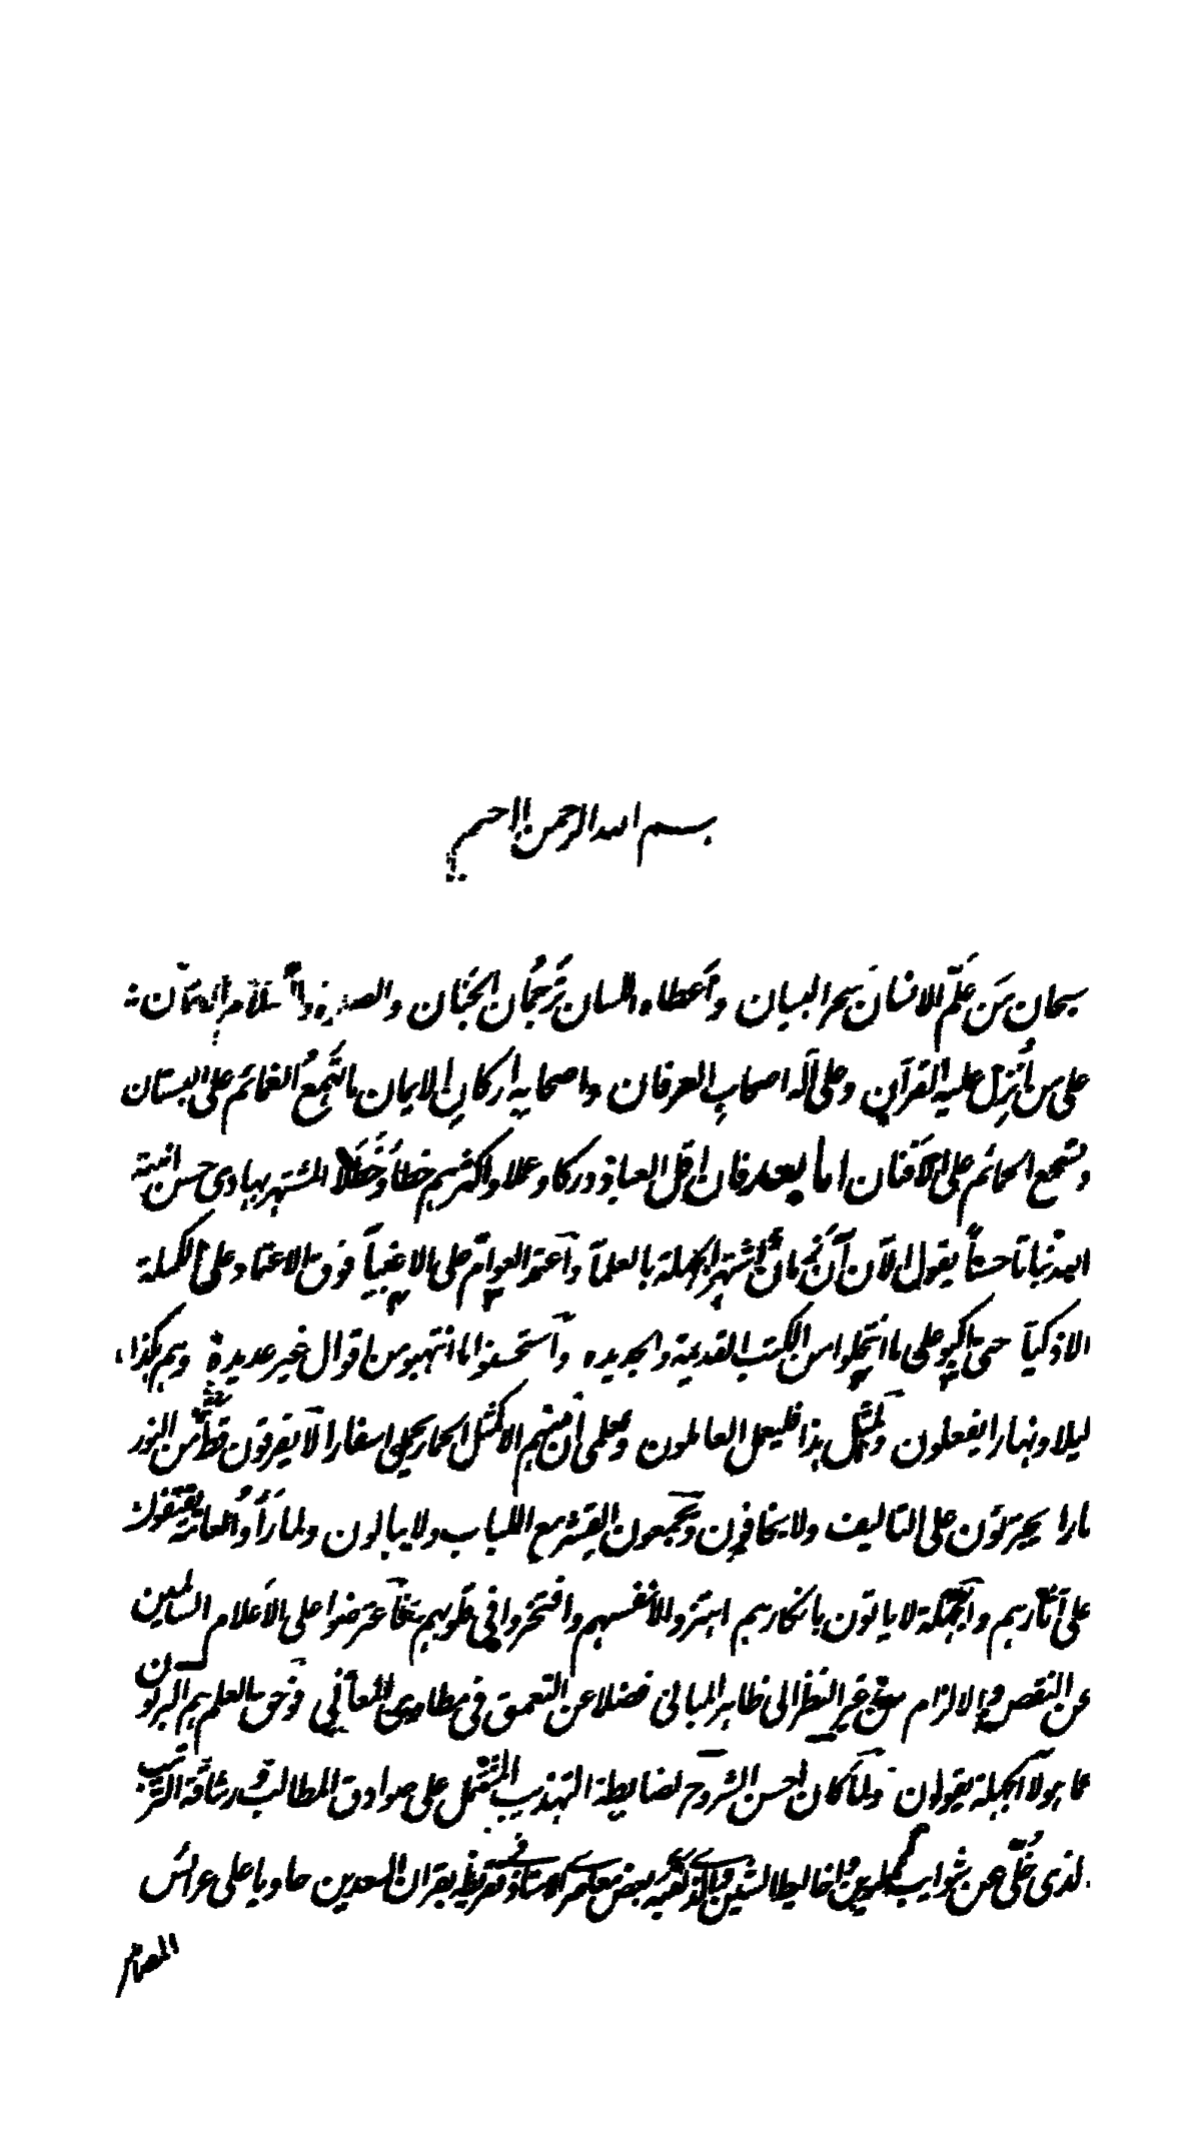 بسم الله الرحمن الرحيم
سبحان من علّم الانسان سحر البيان واعطاه اللسان ترجمان الجنان والصلوة والسلام
على من أُنزل عليه القرآن وعلى آله اصحاب العرفان واصحابه اركان الايمان ما تهمع الغمائم على البستان
وتسجع الحمائم على الافنان اما بعد فان اقل العباد دركا وعملا واكثرهم خطأ وخطلا المشتهر بهادى حسن انبته
الله نباتا حسنا يقول الآن آن زمان اشتهر الجهلة بالعلماء واعتمد العوام على الاغبياء فوق الاعتماد على الكملة
الاذكياء حتى اكبوا على ما انتحلوا من الكتب القديمة والجديده واستحسنوا ما انتهبوا من اقوال غير عديدة وهم هكذا
ليلا ونهارا يفعلون ولمثل هذا فليعمل العاملون ولعلمى ان مثلهم الا كمثل الحمار يحمل اسفارا لا يفرقون قط من النور
نارا يجترئون على التاليف ولا يخافون ويجمعون القشر مع اللباب ولا يبالون ولما رأوا
على آثارهم والجهلة لا ياتون بانكارهم اهتزوا لانفسهم وافتخروا فى قلوبهم فاعترضوا على الاعلام السالمين
عن النقص والالزام من غير النظر الى ظاهر المبانى فضلا عن التعمق فى مطاوى المعانى وحق العلم هم البرئون
عما هولاء الجهلة يقولون ولما كان احسن الشروح لضابطة التهذيب المشتمل على صوادق المطالب ورشاقة الترتيب
الذى خُلّى عن شوائب بقران السعدين حاويا على عرائس